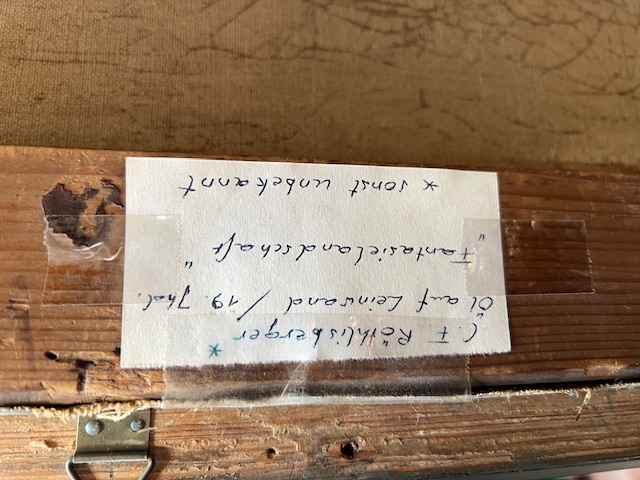 C. F. Röthlisberger *
Öl auf Leinwand / 19. Jhd.
"Fantasielandschaft"
* sonst unbekannt